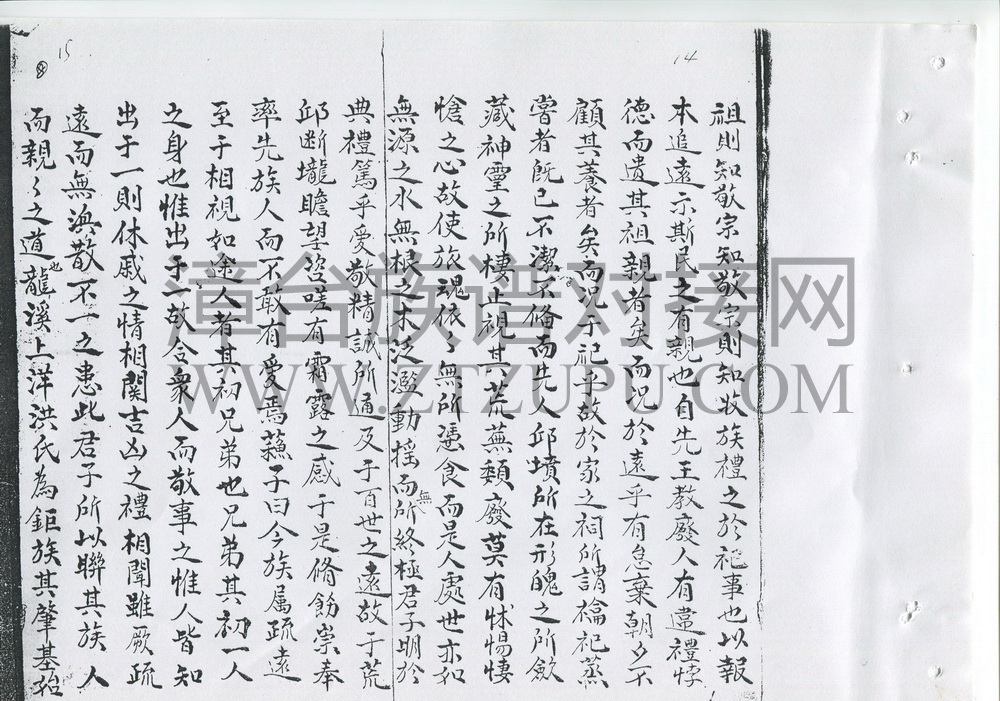 14
祖則知敬宗知敬宗則知收族禮之於祀事也以報
本追遠示斯民之有親也自先王教廢人有違禮悖
德而遺其祖親者矣而况於遠乎有怠棄朝夕不
顧其養者矣而况于祀乎故於家之祠所謂禴祀蒸
嘗者旣已不潔不脩而先人邱墳所在形魄之所歛
藏神靈之所棲止視其荒蕪頽廢莫有怵惕悽
愴之心故使旅魂依〻無所憑食而是人處世亦如
無源之水無根之木泛濫動摇而無所終極君子明於
典禮篤乎愛敬精誠所通及于百世之遠故于荒
邱断壠瞻望咨嗟有霜露之感于是脩飭崇奉
率先族人而不敢有愛焉蘓子曰今族属疏遠
至于相視如途人者其初兄弟也兄弟其初一人
之身也惟出于一故合衆人而敬事之惟人皆知
出于一則休戚之情相関吉凶之禮相聞雖厥疏
遠而無渙散不一之患此君子所以聯其族人
而親〻之道也龍溪上洋洪氏為鉅族其肇基始
15
8
漳台族谱对接网
WWW.ZTZUPU.COM